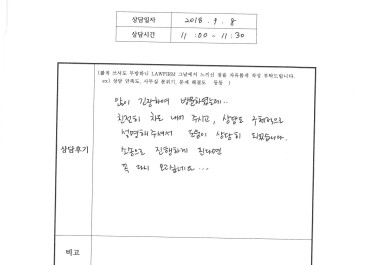 상담일자 2018. 9. 8
상담시간 11:00 - 11:30
(짧게 쓰셔도 무방하니 LAWFIRM 그날에서 느끼신 점을 자유롭게 작성 부탁드립니다.
ex) 상담 만족도, 사무실 분위기, 문제 해결도 등등 )
많이 긴장하여 방문하였는데..
친절히 차도 내어 주시고, 상담도 구체적으로
설명해주셔서 도움이 상당히 되었습니다.
상담후기
소송으로 진행하게 된다면
꼭 다시 오겠습니다...
비고